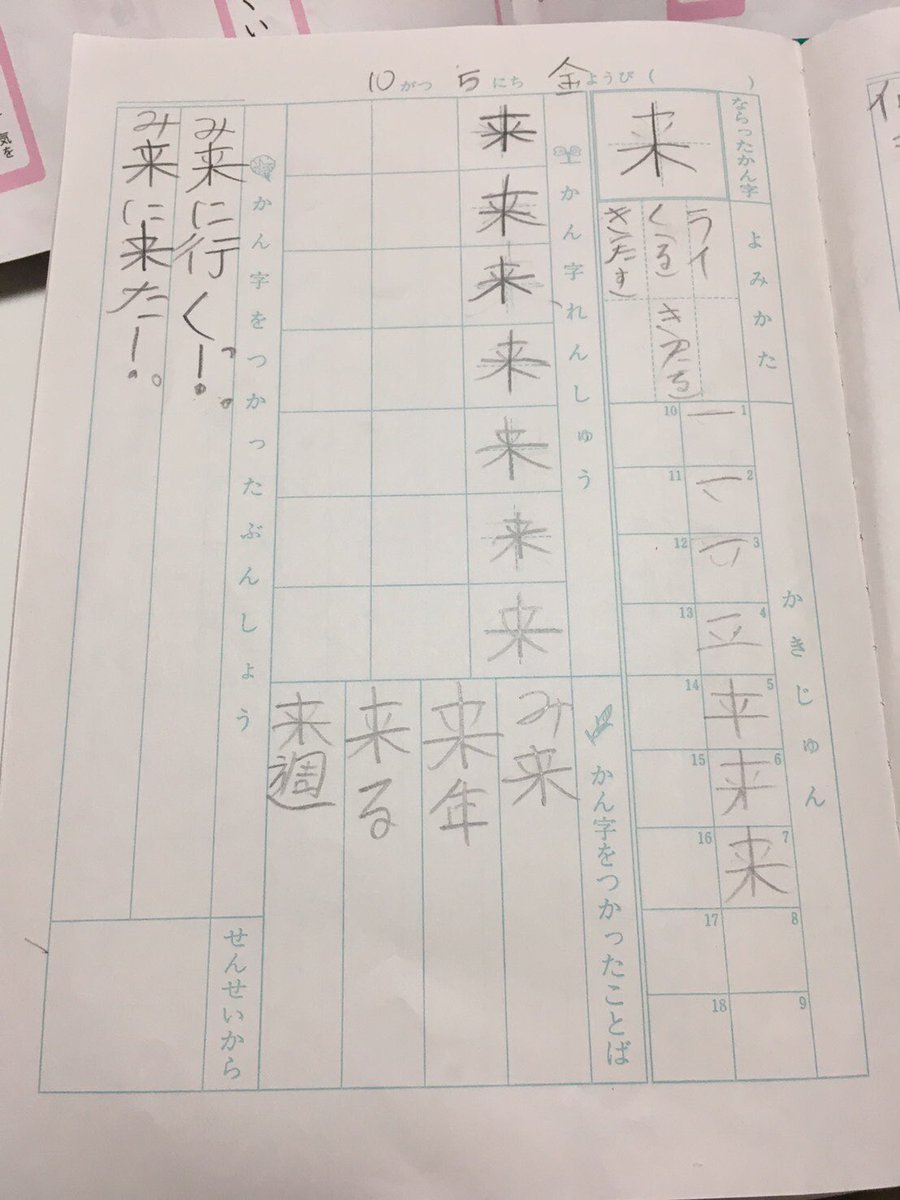 10がつ5にち金ようび( )
ならったかん字
来
よみかた
ライ
く(る)
き(たる)
き(たす)
かきじゅん
1
2
3
4
5
6
7
来
8
9
10
11
12
13
14
15
16
17
18
かん字れんしゅう
来
来
来
来
来
来
来
かん字をつかったことば
み来
来年
来る
来週
かん字をつかったぶんしょう
み来に行くー!。
み来に来たー!。
せんせいから
気を
い